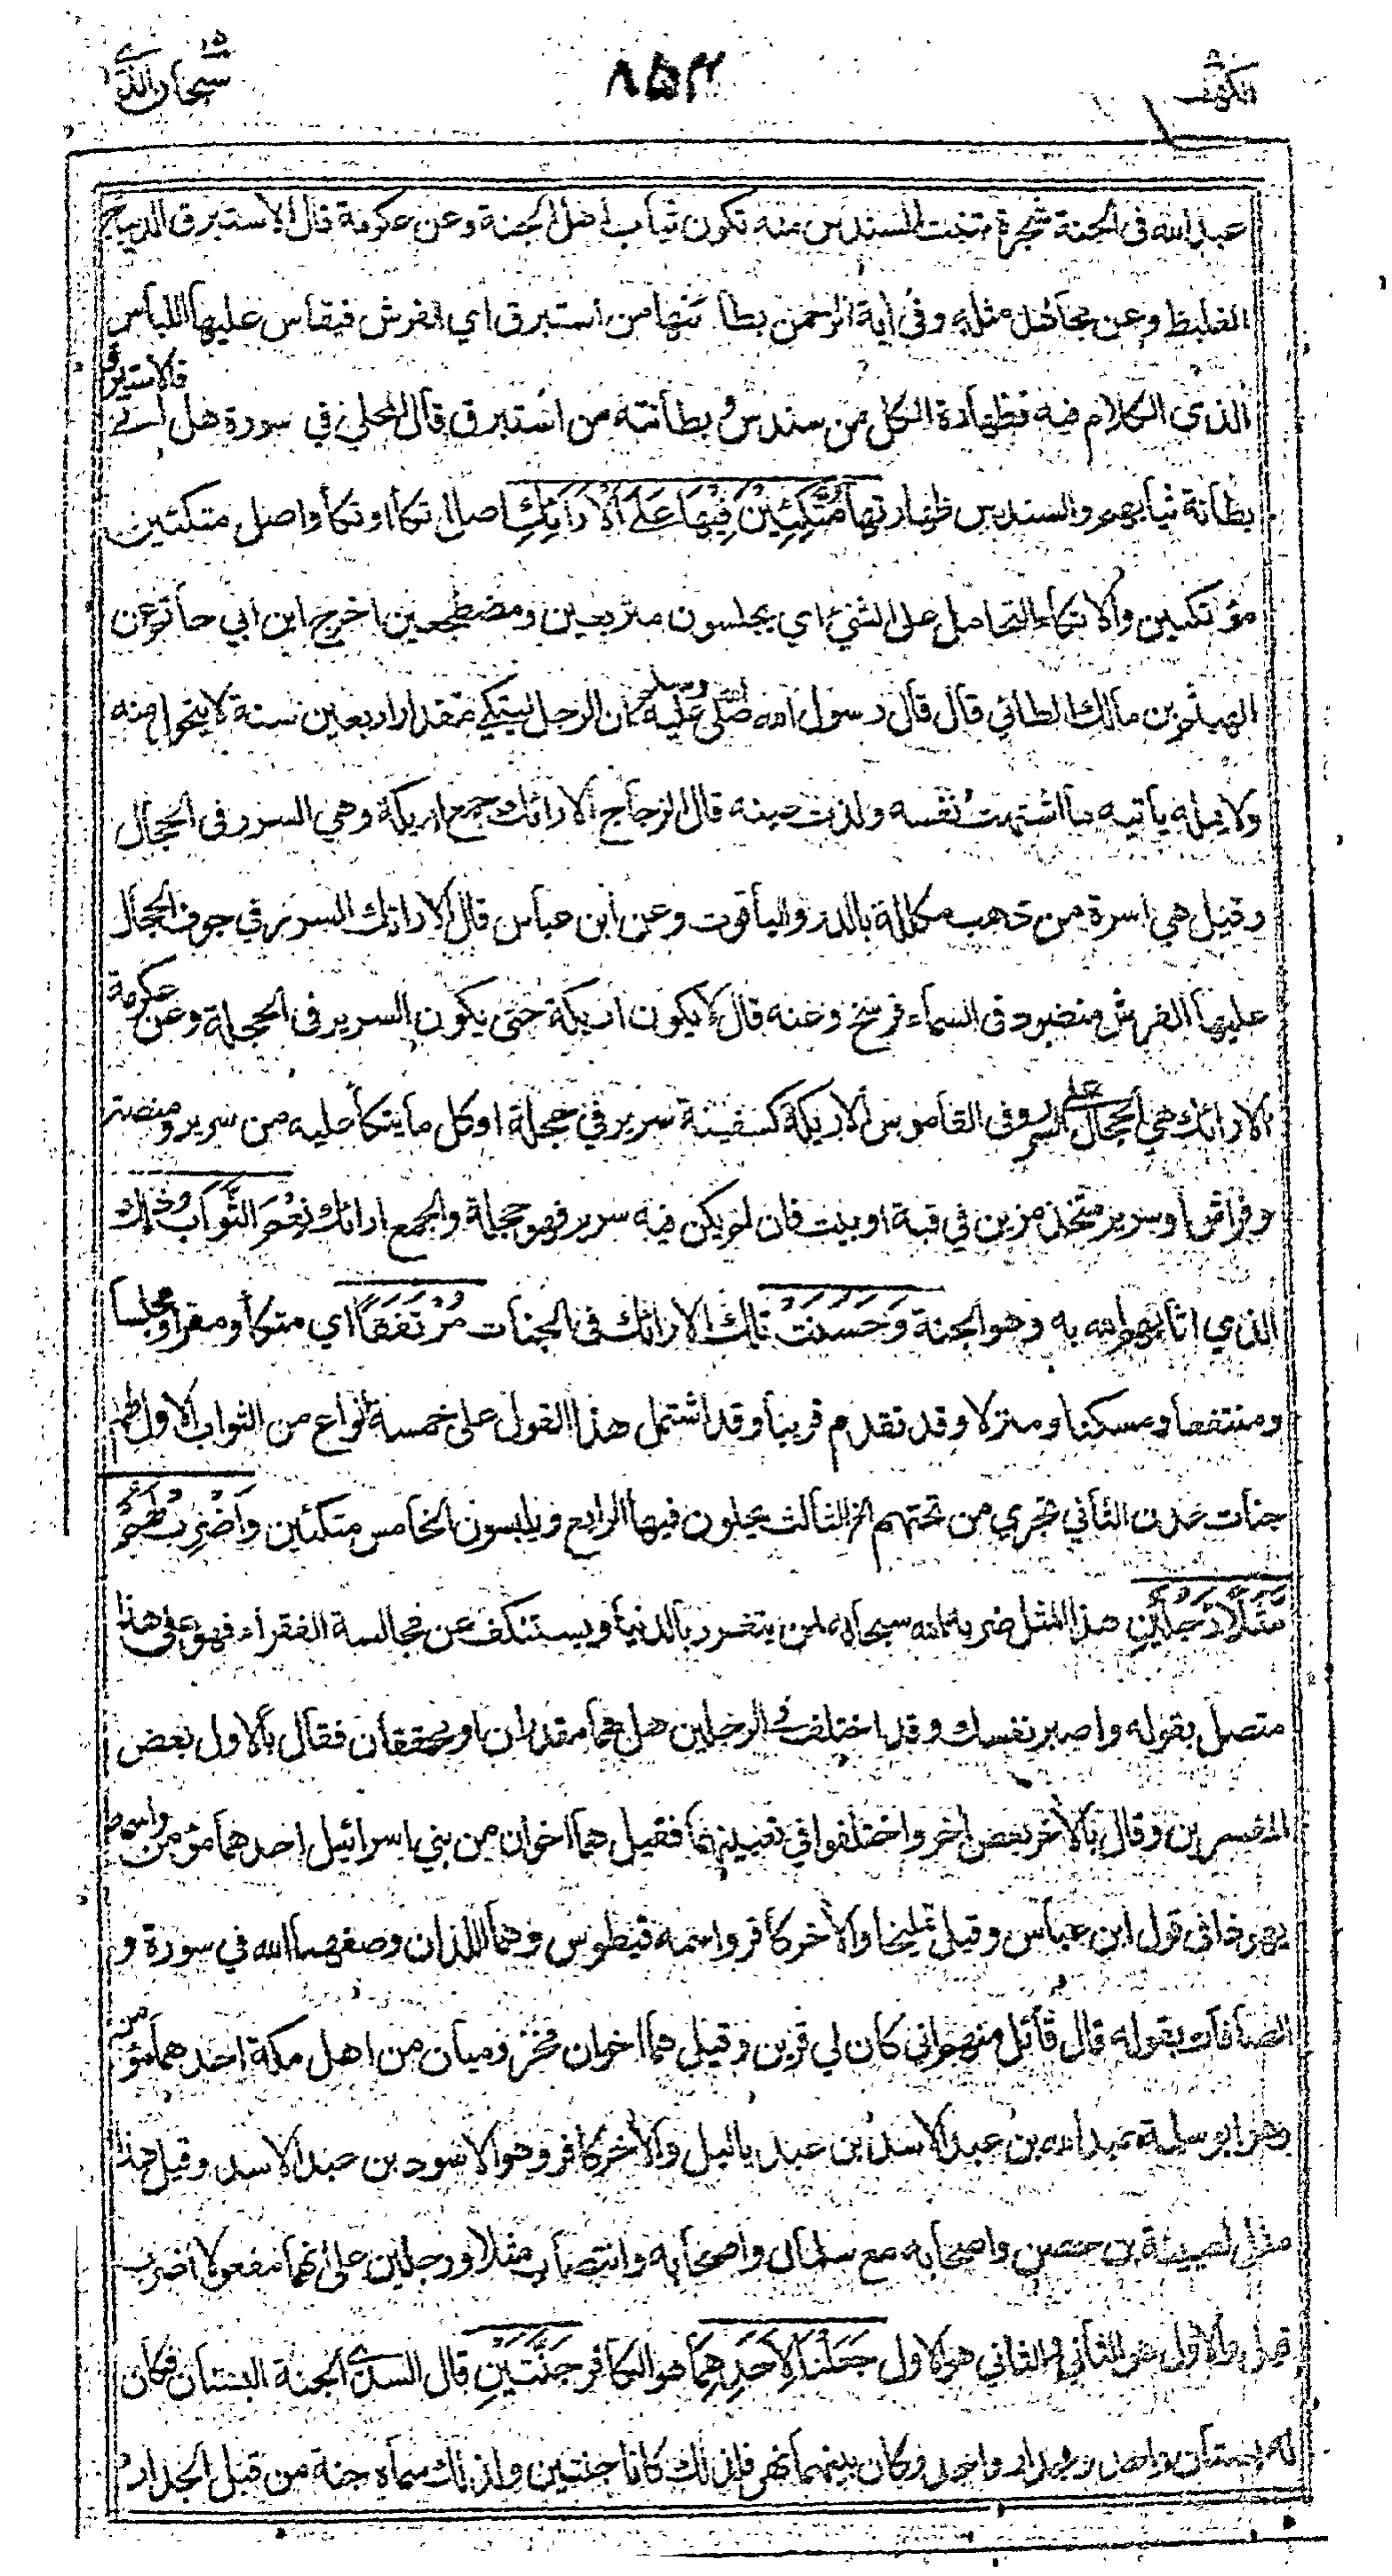 الكهف ٨٥٢ سبحان الذي ١٥
عبد الله في الجنة شجرة تنبت السندس منه تكون ثياب اهل الجنة وعن عكرمة قال الاستبرق الديباج
الغليظ وعن مجاهد مثله وفي أية الرحمن بطائنها من استبرق اي الفرش فيقاس عليها اللباس
الذي الكلام فيه فظهارة الكل من سندس وبطانته من استبرق قال المحلي في سورة هل اتى فالاستبرق
بطانة ثيابهم والسندس ظهارتها مُتَّكِئِيْنَ فِيْهَا عَلَى الْاَرَائِكِ اصل اتكأ اوتكأ واصل متكئين
مؤتكئين والاتكاء التحامل على الشيء اي يجلسون متربعين ومضطجعين اخرج ابن ابي حاتم عن
الهيثم بن مالك الطائي قال قال رسول الله صلى الله عليه وسلم ان الرجل ليتكي مقدار اربعين سنة لا يتحول منه
ولا يمله يأتيه ما اشتهت نفسه ولذت عينه قال الزجاج الارائك جمع اريكة وهي السرر في الحجال
وقيل هي اسرة من ذهب مكللة بالدر والياقوت وعن ابن عباس قال الارائك السرير في جوف الحجال
عليها الفرش منضود في السماء فرسخ وعنه قال لا يكون اريكة حتى يكون السرير في الحجلة وعن عكرمة
الارائك هي الحجال على السرر وفي القاموس الاريكة كسفينة سرير في حجلة او كل ما يتكأ عليه من سرير ومنصة
وفراش او سرير متخذ مزين في قبة او بيت فان لم يكن فيه سرير فهو حجلة والجمع ارائك نِعْمَ الثَّوَابُ وذلك
الذي اثابهم الله به وهو الجنة وَحَسُنَتْ تلك الارائك في الجنات مُرْتَفَقًا اي متكأ ومقرا ومجلسا
ومنتفعا ومسكنا ومنزلا وقد تقدم قريبا وقد اشتمل هذا القول على خمسة انواع من الثواب الاول لهم
جنات عدن الثاني تجري من تحتهم الخ الثالث يحلون فيها الرابع ويلبسون الخامس متكئين وَاضْرِبْ لَهُمْ
مَّثَلًا رَّجُلَيْنِ هذا المثل ضربه الله سبحانه لمن يتعزز بالدنيا ويستنكف عن مجالسة الفقراء فهو على هذا
متصل بقوله واصبر نفسك وقد اختلف في الرجلين هل هما مقدران او محققان فقال بالاول بعض
المفسرين وقال بالأخر بعض أخر واختلفوا في تعيينهما فقيل هما اخوان من بني اسرائيل احدهما مؤمن واسمه
يهوذا في قول ابن عباس وقيل تمليخا والأخر كافر واسمه قيطوس وهما اللذان وصفهما الله في سورة و
الصافات بقوله قال قائل منهم اني كان لي قرين وقيل هما اخوان مخزوميان من اهل مكة احدهما مؤمن
وهو ابو سلمة عبد الله بن عبد الاسد بن عبد ياليل والأخر كافر وهو الاسود بن عبد الاسد وقيل هذا
مثل لعيينة بن حصين واصحابه مع سلمان واصحابه وانتصاب مثلا ورجلين على انهما مفعولا اضرب
قيل والاول هو الثاني والثاني هو الاول جَعَلْنَا لِاَحَدِهِمَا هو الكافر جَنَّتَيْنِ قال السدي الجنة البستان فكان
له بستان واحد وجدار واحد وكان بينهما نهر فلذلك كانا جنتين ولذلك سماه جنة من قبل الجدار